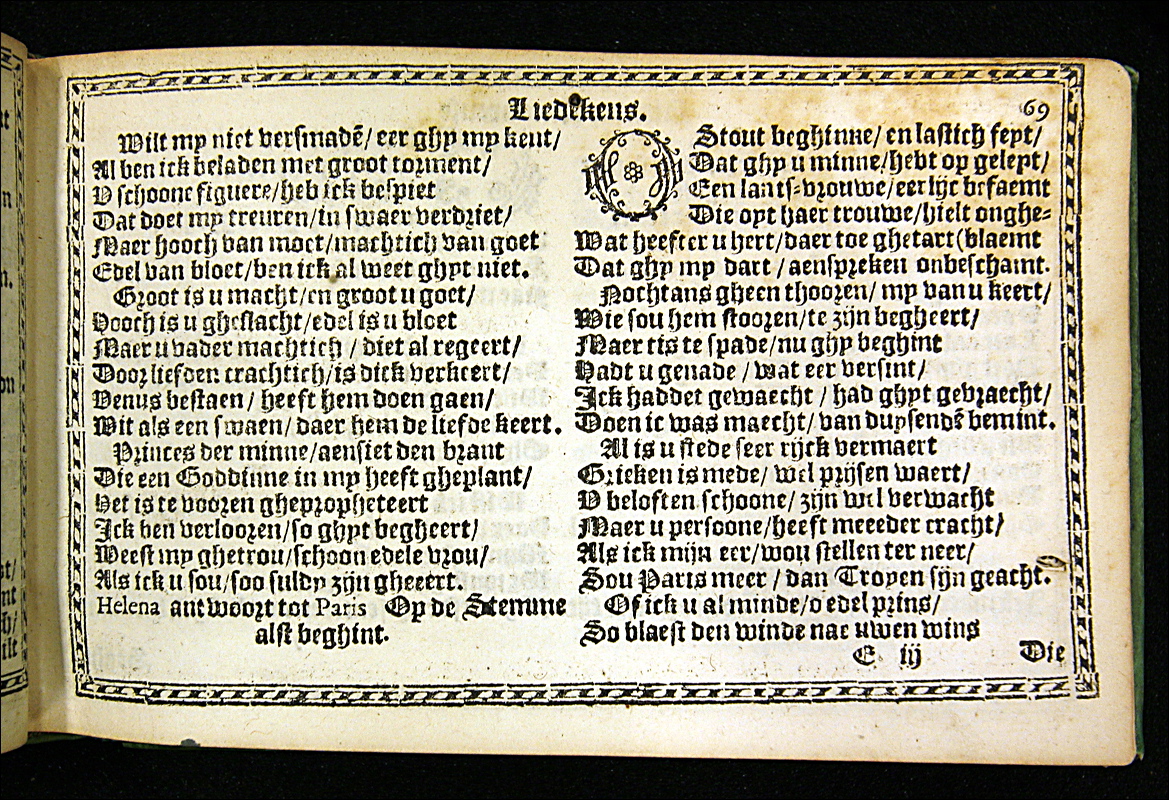 Liedekens.
69
Wilt my niet versmadē/ eer ghy my kent/
Al ben ick beladen met groot torment/
V schoone figuere/ heb ick bespiet
Dat doet my treuren/ in swaer verdriet/
Maer hooch van moet/ machtich van goet
Edel van bloet/ ben ick al weet ghyt niet.
Groot is u macht/ en groot u goet/
Hooch is u gheslacht/ edel is u bloet
Maer u vader machtich / diet al regeert/
Door liefden crachtich/ is dick verkeert/
Venus bestaen / heeft hem doen gaen/
Wit als een swaen/ daer hem de liefde keert.
Princes der minne/ aensiet den brant
Die een Goddinne in my heeft gheplant/
Het is te vooren ghepropheteert
Ick ben verlooren/ so ghyt begheert/
Weest my ghetrou/ schoon edele vrou/
Als ick u sou/ soo suldy zijn gheeert.
Helena antwoort tot Paris Op de Stemme
alst beghint.
O Stout beghinne/ en lastich feyt/
Dat ghy u minne/ hebt op geleyt/
Een lants-vrouwe/ eerlijc befaemt
Die oyt haer trouwe/ hielt onghe-
Wat heefter u hert/ daer toe ghetart (blaemt
Dat ghy my dart / aenspreken onbeschamt.
Nochtans gheen thooren/ my van u keert/
Wie sou hem stooren/ te zijn begheert/
Maer tis te spade/ nu ghy beghint
Hadt u genade / wat eer versint/
Ick haddet gewaecht / had ghyt gevraecht/
Doen ic was maecht/ van duysendē bemint.
Al is u stede seer rijck vermaert
Grieken is mede/ wel prijsen waert/
V beloften schoone/ zijn wel verwacht
Maer u persoone/ heeft meeeder cracht/
Als ick mijn eer/ wou stellen ter neer/
Sou Paris meer / dan Troyen sijn geacht.
Of ick u al minde/ o edel prins/
So blaest den winde nae uwen wins
E iij
Die